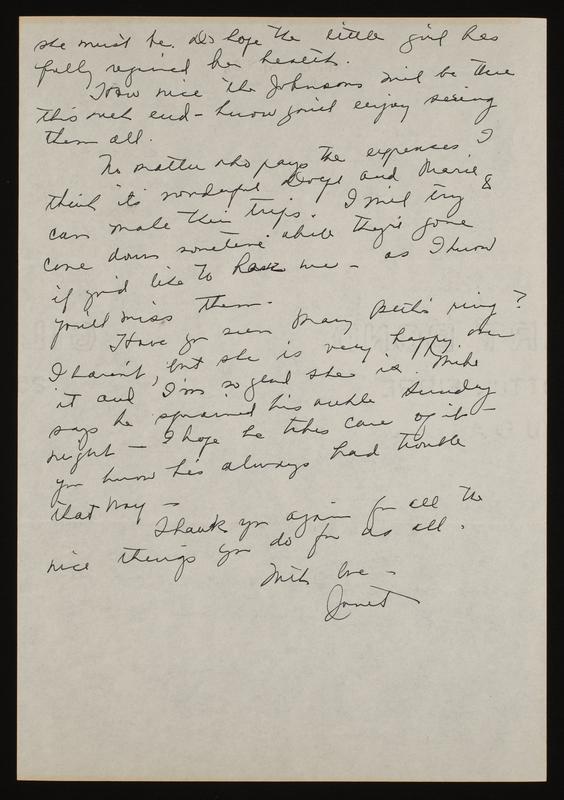 she must be. Do hope the little girl has
fully regained her health.
How nice the Johnsons will be there
this week end - know you'll enjoy seeing
them all.
No matter who pays the expenses I
think it's wonderful and Marie
can make their trips. I will try &
come down sometime while they're gone
if you'd like to have me - as I know
you'll miss them.
Have you seen Mary Beth's ring?
I haven't, but she is very happy over
it and I'm so glad she is. Mike
says he sprained his ankle Sunday
night - I hope he takes care of it -
you know he's always had trouble
that way -
Thank you again for all the
nice things you do for us all.
With love -
Janet